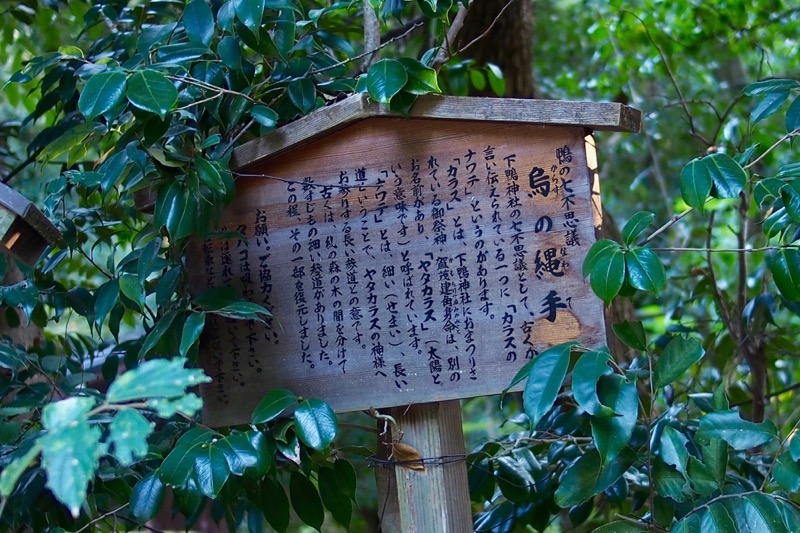 鴨の七不思議
烏の縄手
からす
なわ
て
下鴨神社の七不思議として、古くから
言い伝えられている一つに、「カラスの
ナワテ」というのがあります。
「カラス」とは、下鴨神社におまつりさ
れている御祭神 賀茂建角身命は、別の
お名前があり 「ヤタカラス」(太陽と
いう意味です)と呼ばれています。
「ナワテ」とは、細い(せまい)、長い
道ということで、ヤタカラスの神様へ
お参りする長い参道との意です。
古くは、糺の森の木の間を分けて
数すじもの細い参道がありました。
この程、その一部を復元しました。
お願い、ご協力ください。
タバコは吸わないで下さい。